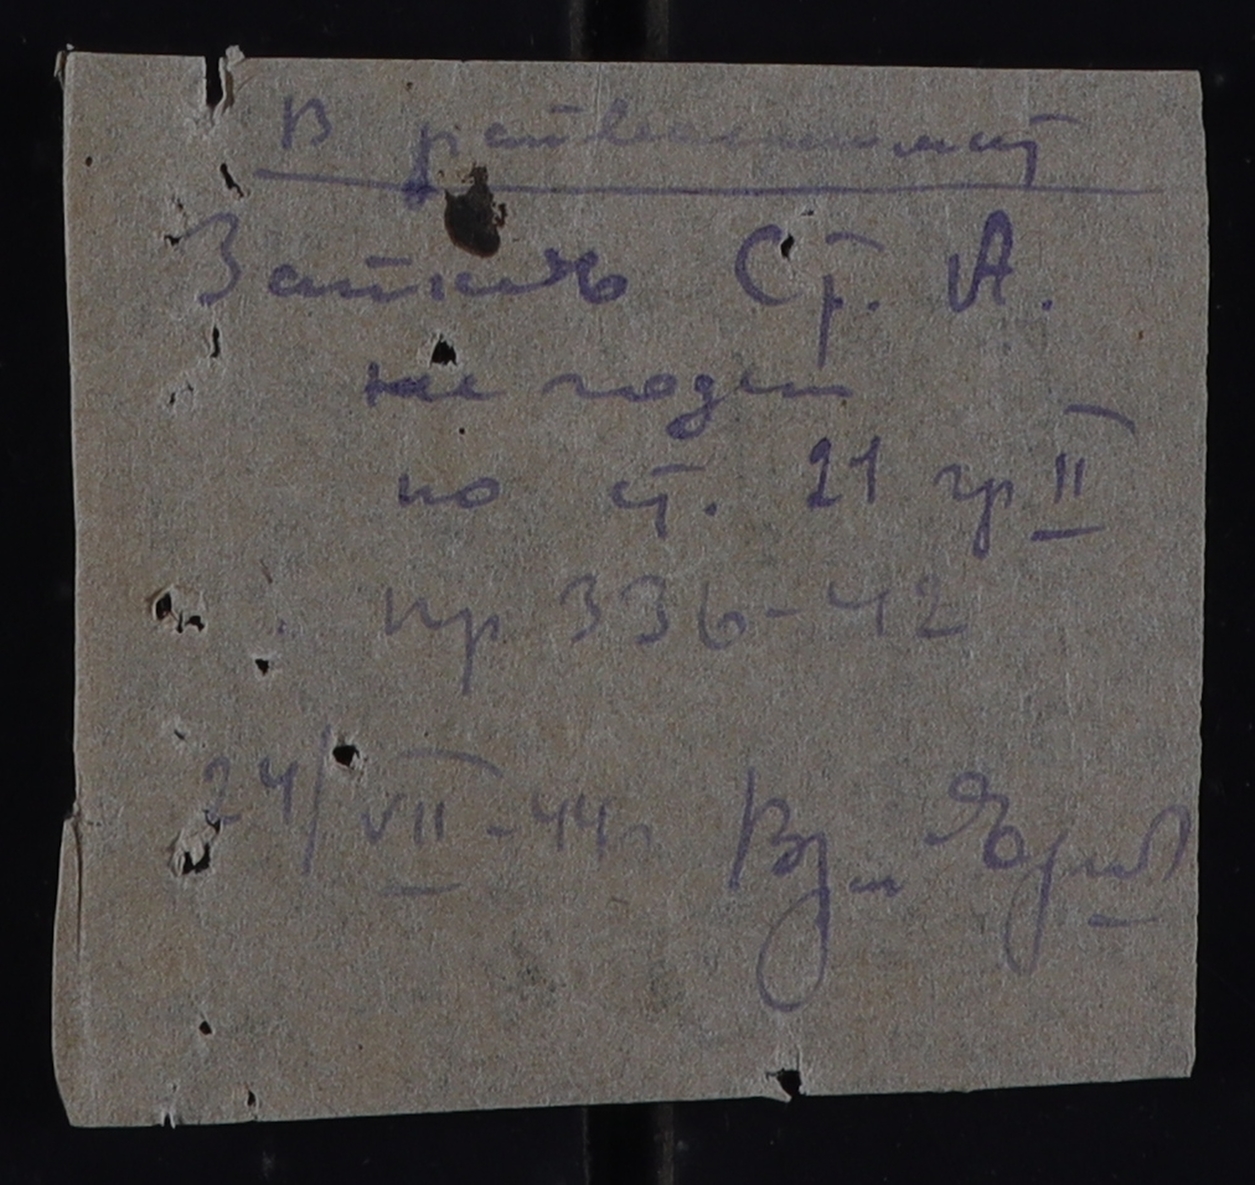 В райвоенкомат
Ст. А.
не годен
по ст. 21 гр II
пр 336-42
24/VII-44г